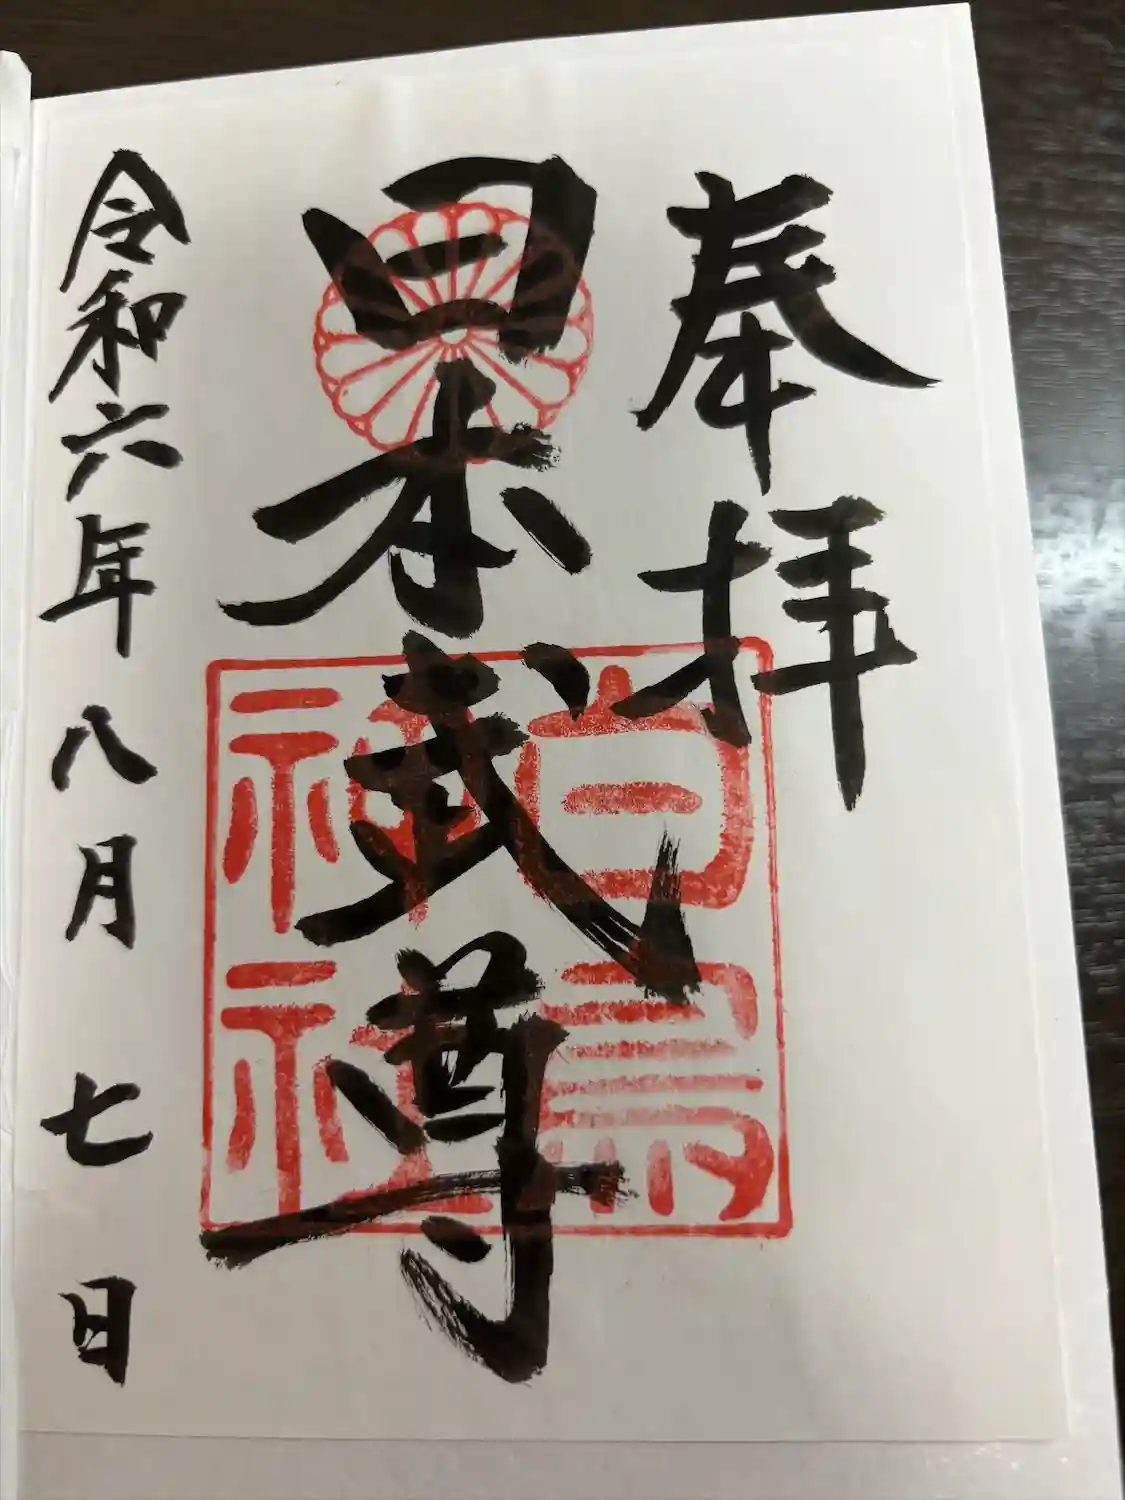 奉拝
日本武尊
白鳥
神社
令和六年八月七日